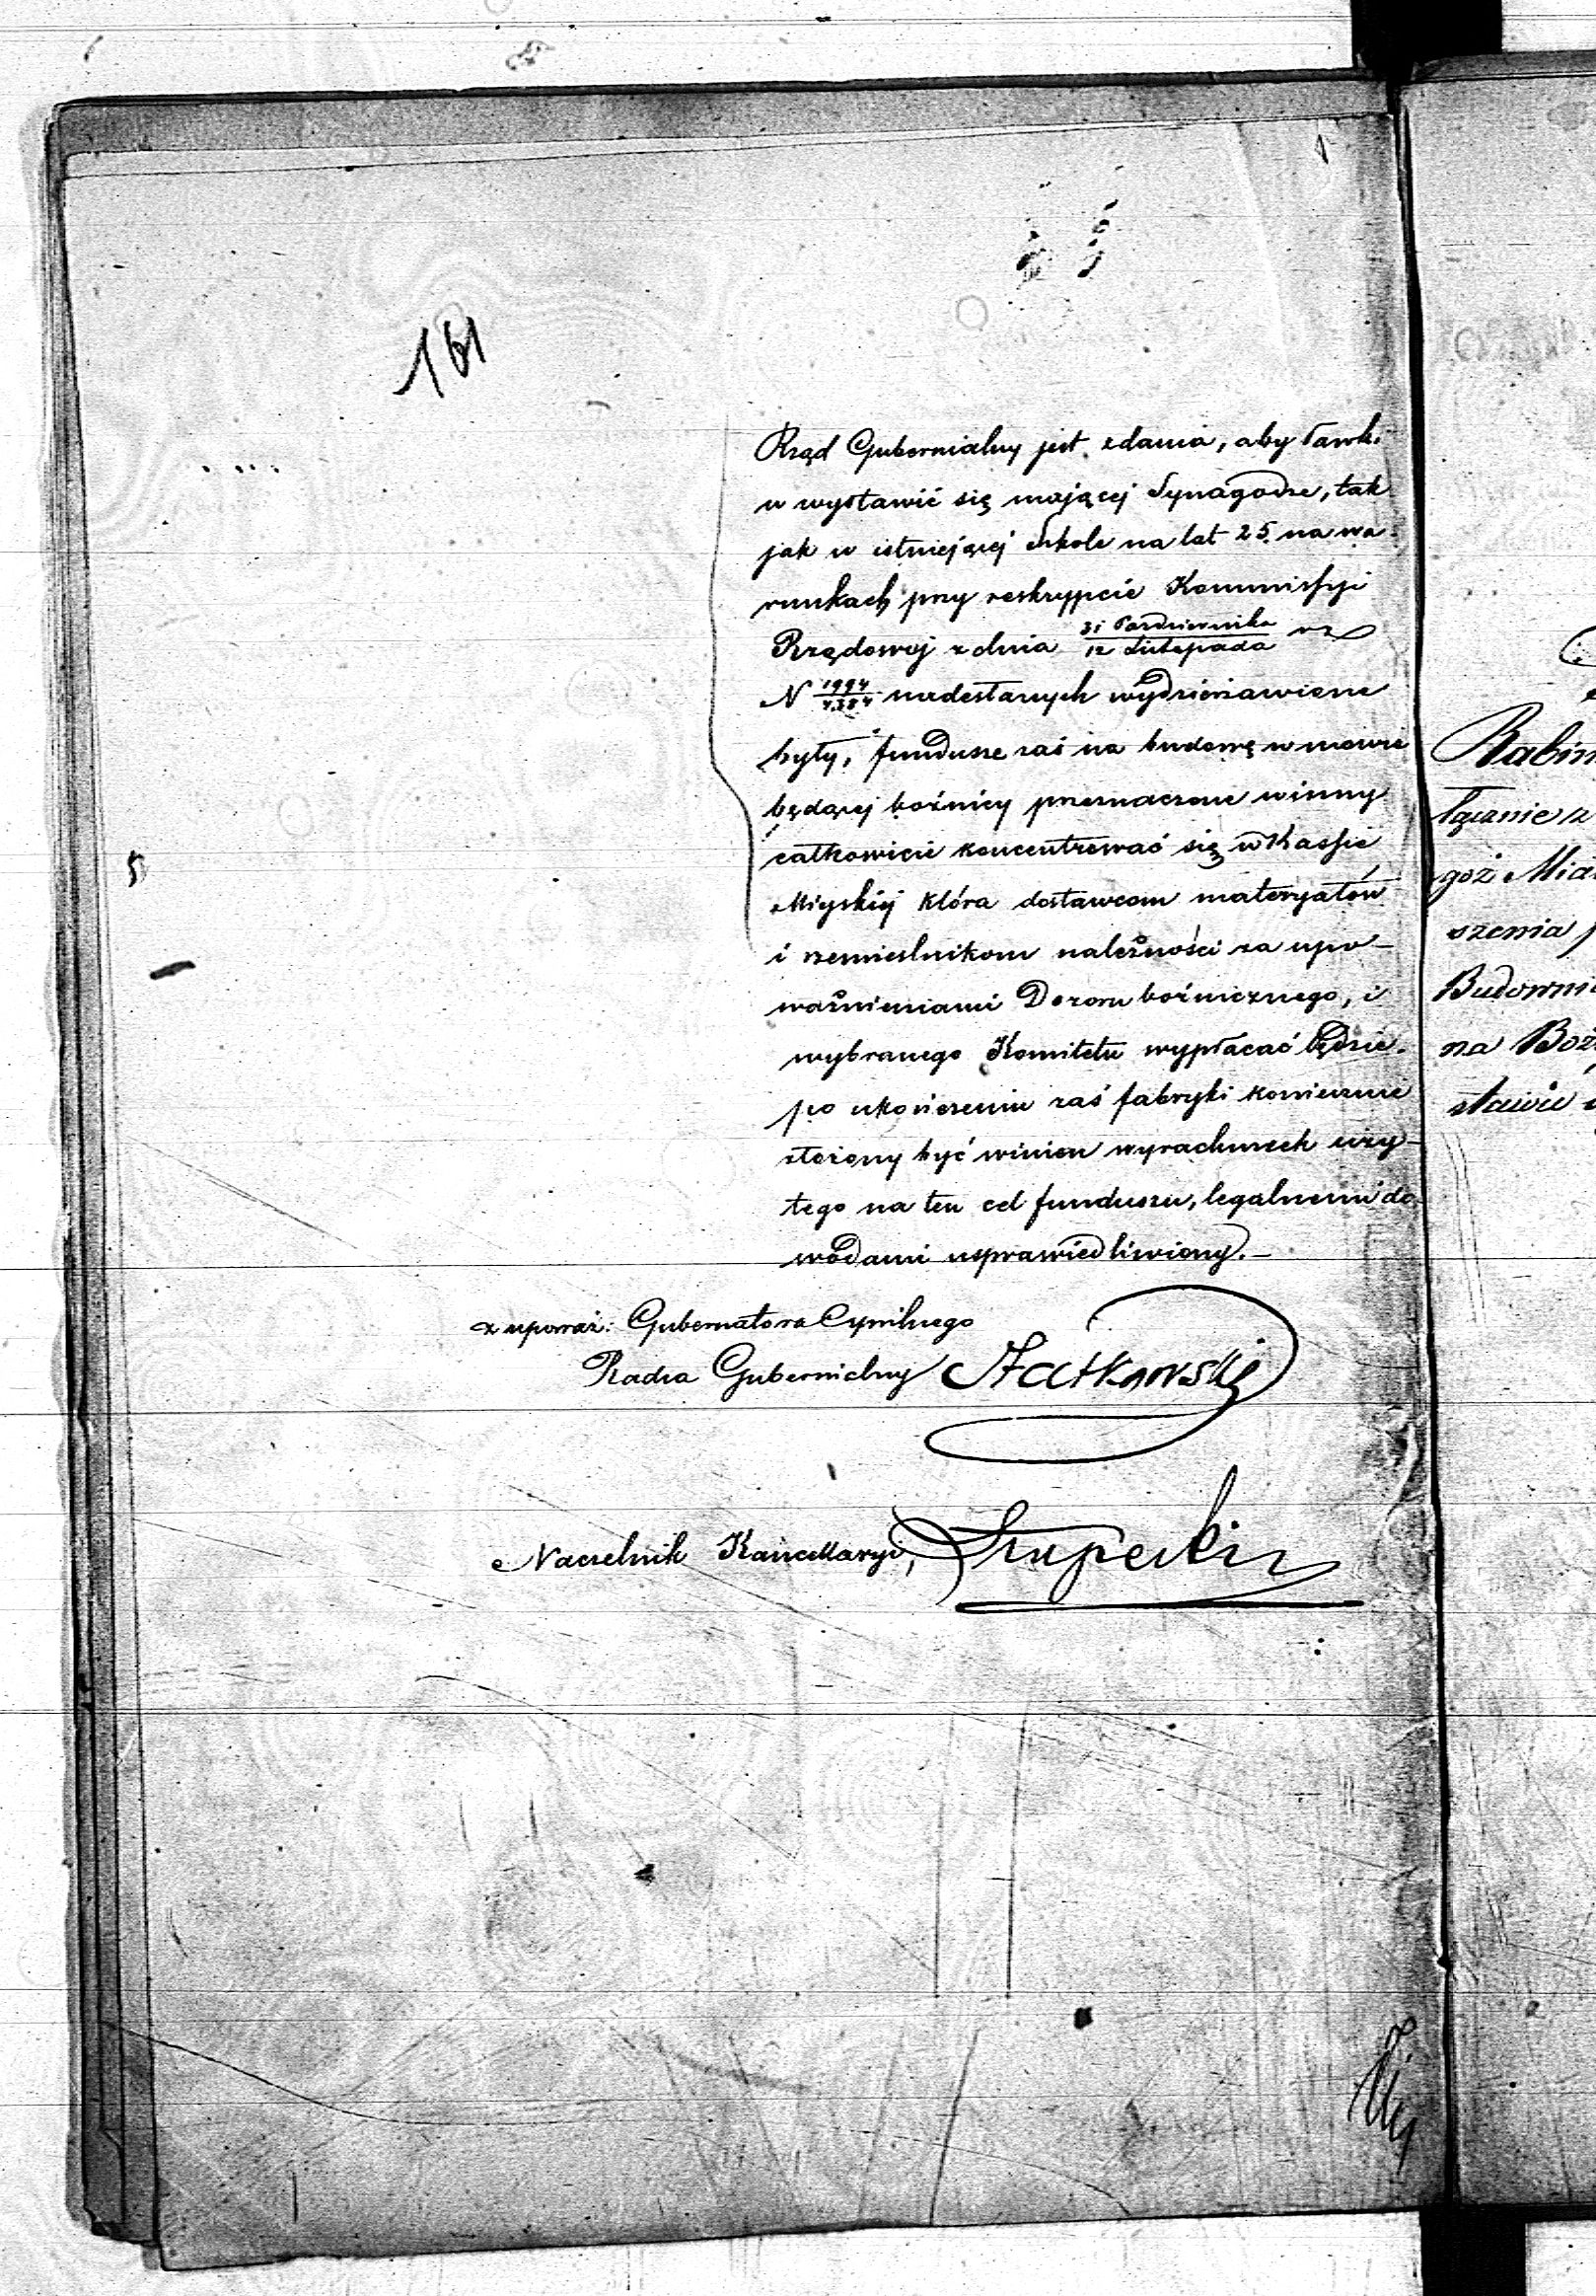 161
Rząd Gubernialny jest zdania, aby ławki
w wystawić się mającej Synagodze, tak
jak w istniejącej Szkole na lat 25. na wa-
runkach przy reskrypcie Kommissyi
Rządowej z dnia 31 Października / 12 Listopada
N nadesłanych wydzierżawione
były, fundusze zaś na budowę w mowie
będącej bożnicy przeznaczone winny
całkowicie koncentrować się w Kassie
Mieyskiej która dostawcom materyałów
i rzemieślnikom należności za upo-
ważnieniami Dozoru bożnicznego, i
wybranego Komitetu wypłacać będzie.
po ukończeniu zaś fabryki koniecznie
złożony być winien wyrachunek uży-
tego na ten cel funduszu, legalnemi do-
wodami usprawiedliwiony.—
z upoważ: Gubernatora Cywilnego
Radca Gubernialny
Naczelnik Kancellaryi,
Rabin
łącznie z
goż Mia
szenia p
Budowni
na Boż